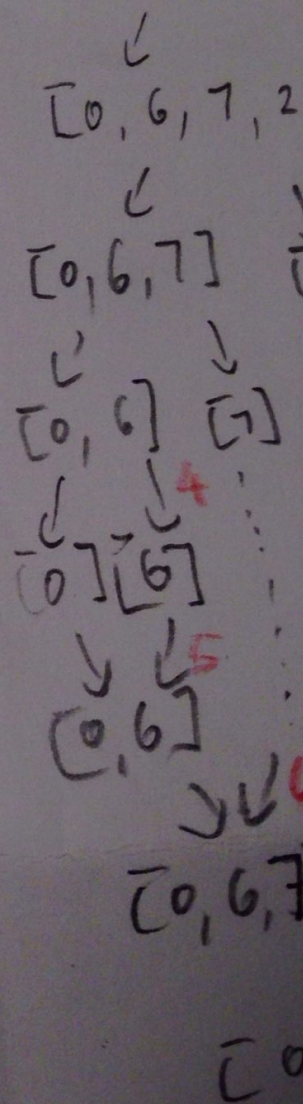 [0, 6, 7, 2
[0, 6, 7]
[0, 6] [7]
4
[0] [6]
5
[0, 6]
[0, 6, 7]
[0